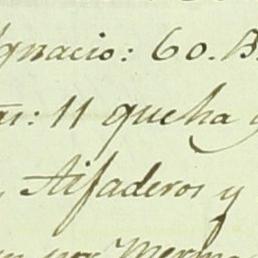 Ignacio: 60. B
as: 11 que ha
Aifaderos y
por Merma